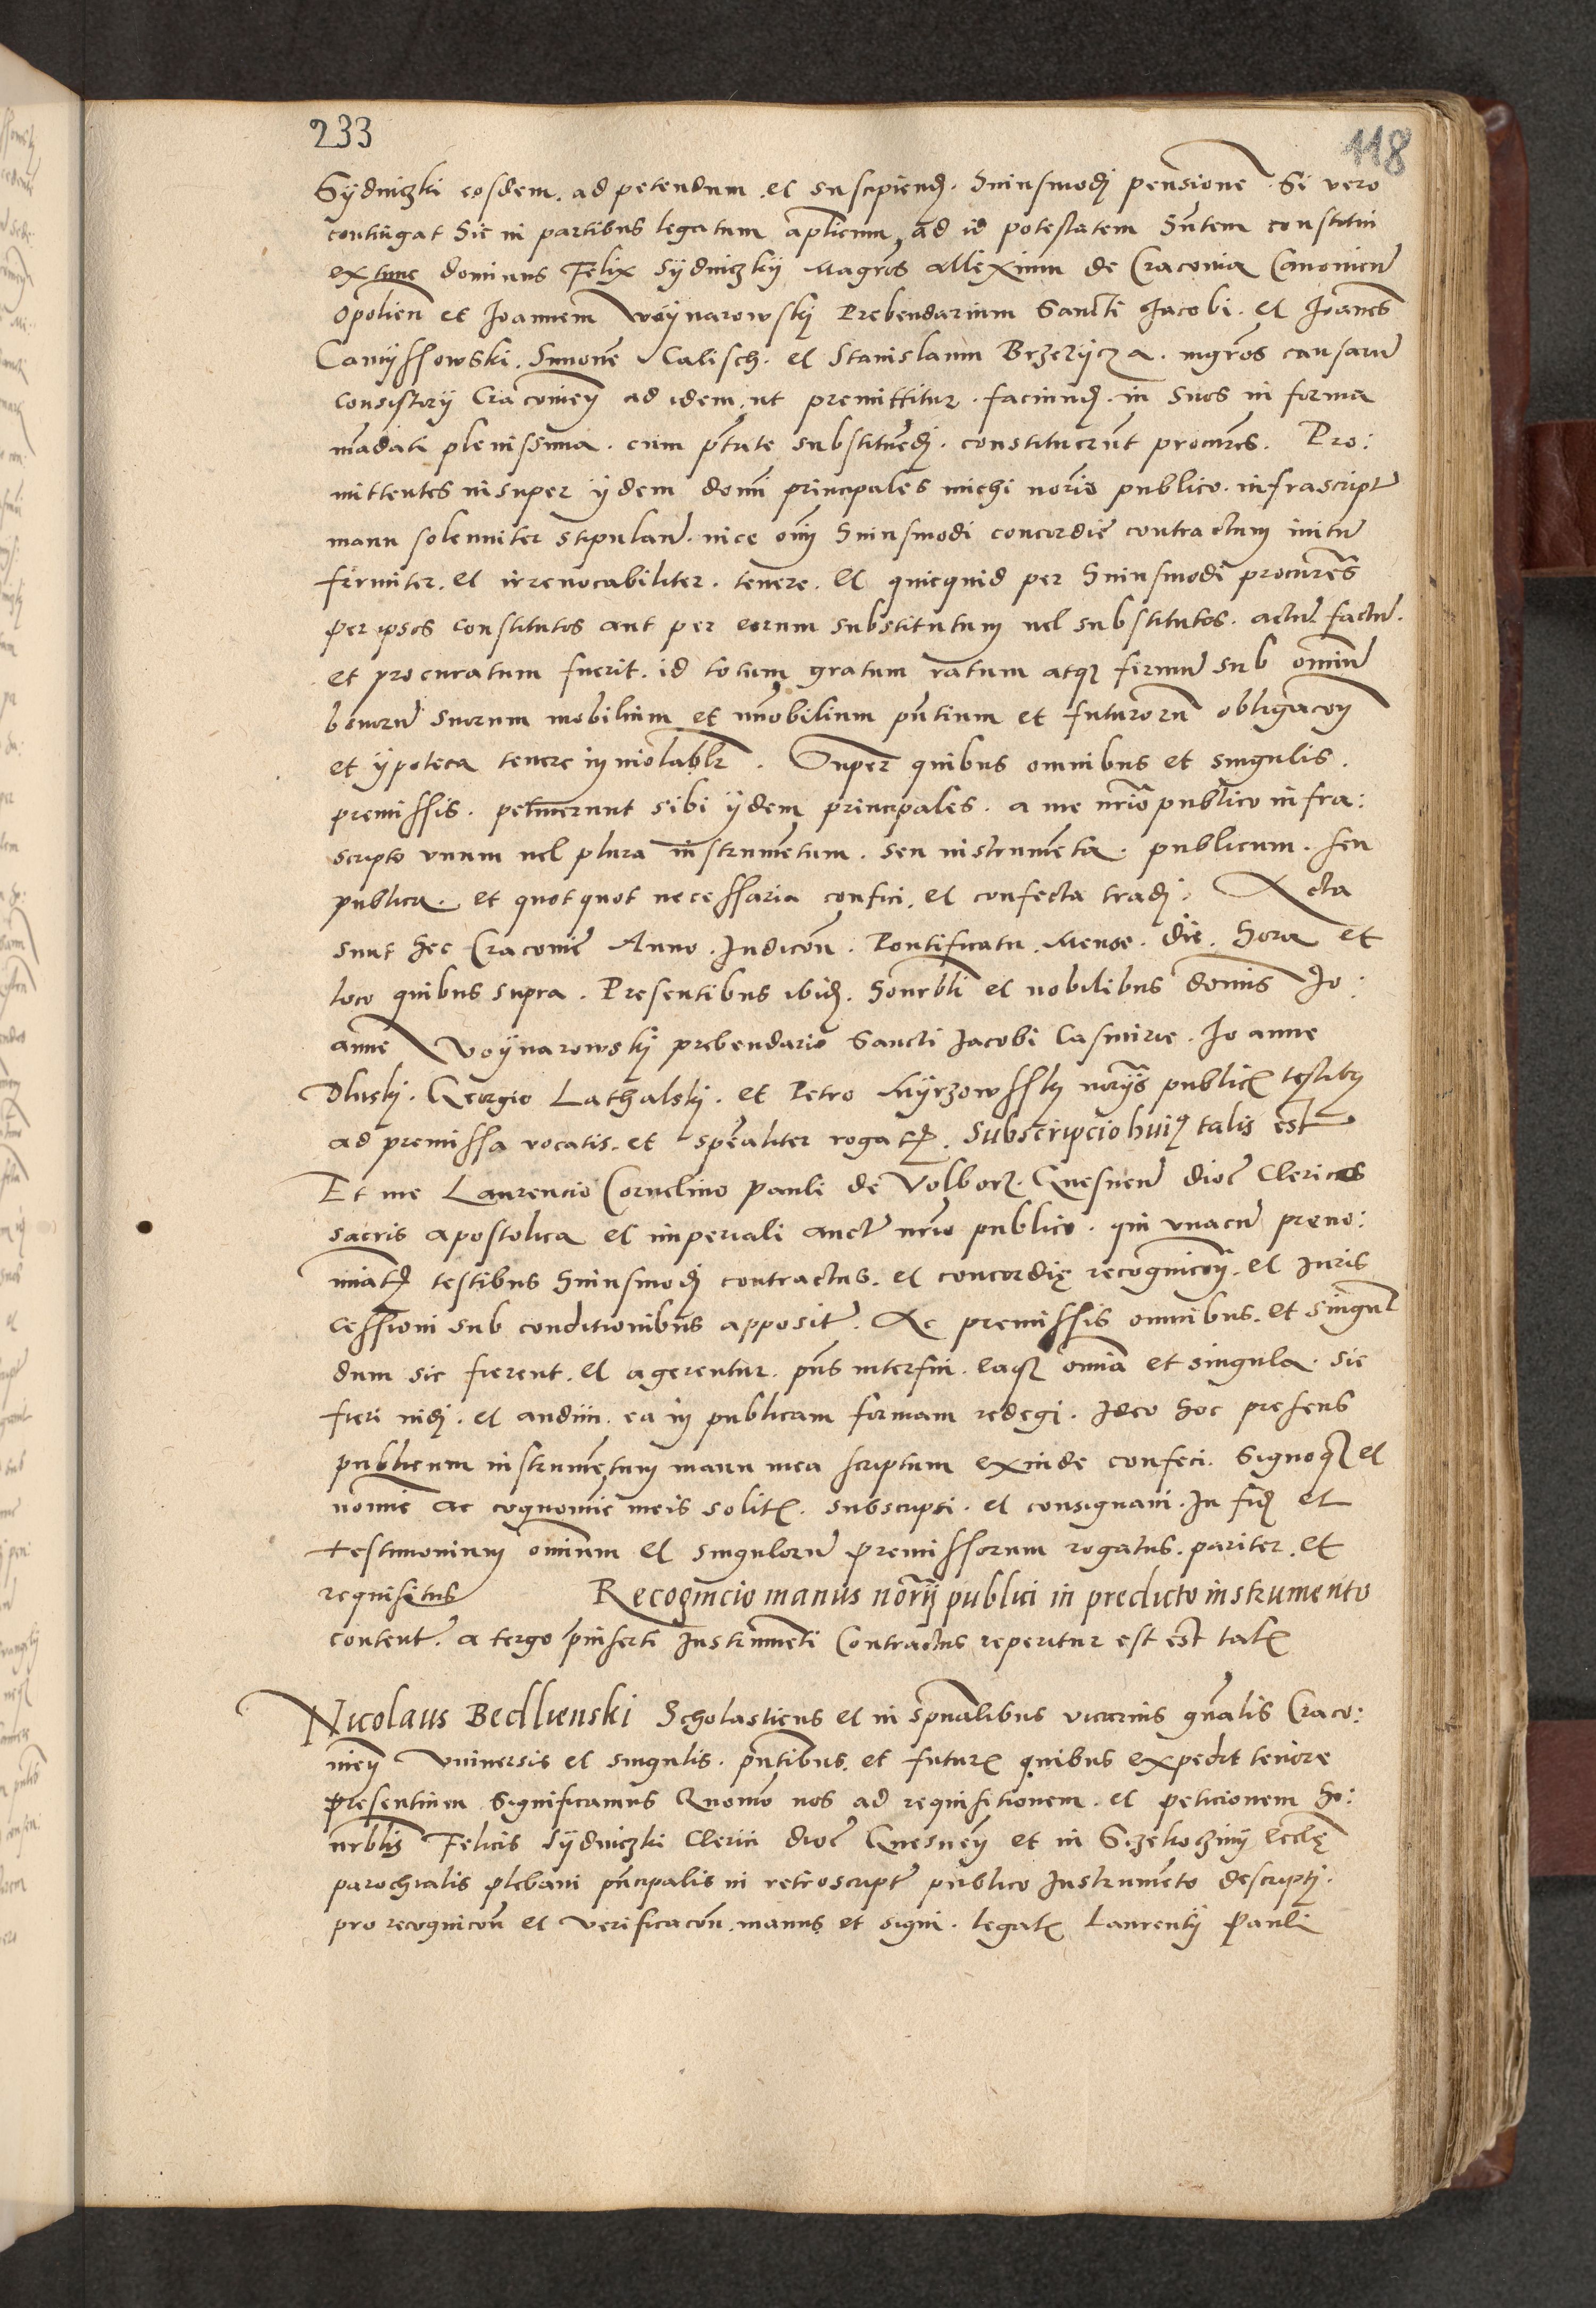 233
118
Sÿdniczki eosdem. ad petendum. et suscipiend. huiusmodj pensione. Si vero
contingat hic in partibus legatum aplicum, ad id potestatem hntem constitui
ex tunc dominus Felix Sÿdniczkÿ Magros Allexium de Cracouia Canonicu
Opolien et Joannem Woÿnarowskj Prebendarium Sancti Jacobi. et Joanes
Simone Calisch. et Stanislaum Brzezÿcza. mgros causaru
consistorij Cracouien ad idem, ut premittitur. faciund. in suos in forma
madati plenissima. cum ptate substituedj. constituerunt procures. Pro:
mittentes insuper ijdem domi principales michi norio publico. infrascript
manu solenniter stipulan. vice oim huiusmodi concordie contractum initu
firmiter. et irreuocabiliter. tenere. et quicquid per huiusmodi procures
per ipsos constitutos aut per eorum substitutum vel substitutos. actu factu.
et procuratum fuerit. id totum gratum ratum atq firmu sub omniu
bonoru suorum mobilium et immobilium pntium et futuroru obligacon
et ÿpoteca tenere inuiolablr. Super quibus omnibus et singulis.
premissis. petiuerunt sibi ijdem principales. a me nrio publico infra:
scripto vnum vel plura instrumetum. seu instrumeta. publicum. seu
publica. et quotquot necessaria confici. et confecta tradj. Acta
sunt hec Cracouie Anno. Indicon. Pontificatu. Mense. die. hora et
loco quibus supra. Presentibus ibid. honrbli et nobilibus domis Jo:
anne Woÿnarowskj prebendario Sancti Jacobi Casmirie. Joanne
Dluskj. Georgio Lathalskj. et Petro norijs public testibus
ad premissa vocatis. et specaliter rogat. Subscripcio hui9 talis est
Et me Laurencio Cornelino Pauli de Volborz. Gnesnen dioc Clericos
sacris apostolica et imperiali auct nrio publico. qui vnacu preno:
miat testibus huiusmodj contractus. et concordię recognicoj. et iuris
cessioni sub conditionibus apposit. Ac premissis omnibus. et singul
dum sic fierent. et agerentur. pns interfui. eaq omia et singula. sic
fieri vidj. et audiui. ea in publicam formam redegi. Ideo hoc presens
publicum instrumetum manu mea scriptum exinde confeci. Signoq et
nomie ac cognomie meis solit. subscripsi. et consignaui. In fid et
testimonium omium et singuloru premissorum rogatus. pariter. et
requisitus Recognicio manus norij publici in predicto instrumento
content. a tergo pinserti Instrumeti Contractus reperitur est est talis
Nicolaus Bedlienski Scholasticus et in spualibus vicarius gnalis Craco:
uien Vniuersis et singulis. pntibus. et futur quibus expedit tenore
presentium significamus Quomo nos ad requisitionem. et peticionem ho:
nrblis Felicis Sÿdniczki Clerici dioc Gnesnen et in Sczekoczinÿ Ecclę
parochialis plebani pncipalis in retroscript publico Instrumeto descriptj.
pro recognicon et verificacon. manus et signi. legal Laurentij Pauli